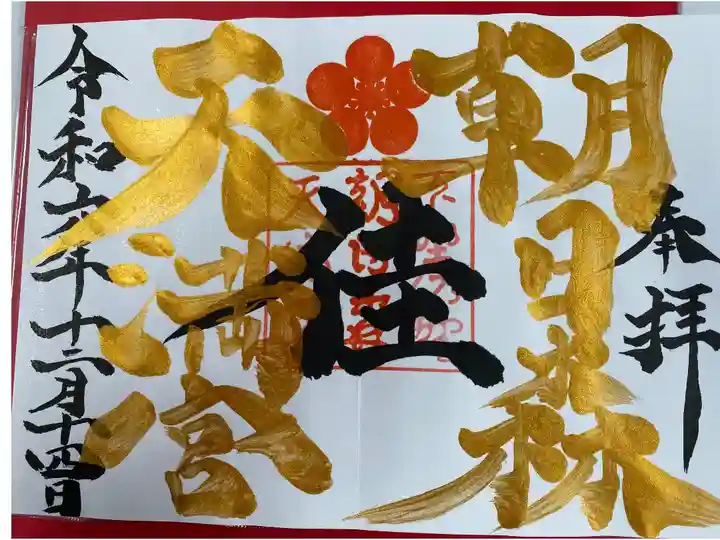 奉拝
朝日森
天満宮
佳
令和六年十二月十四日